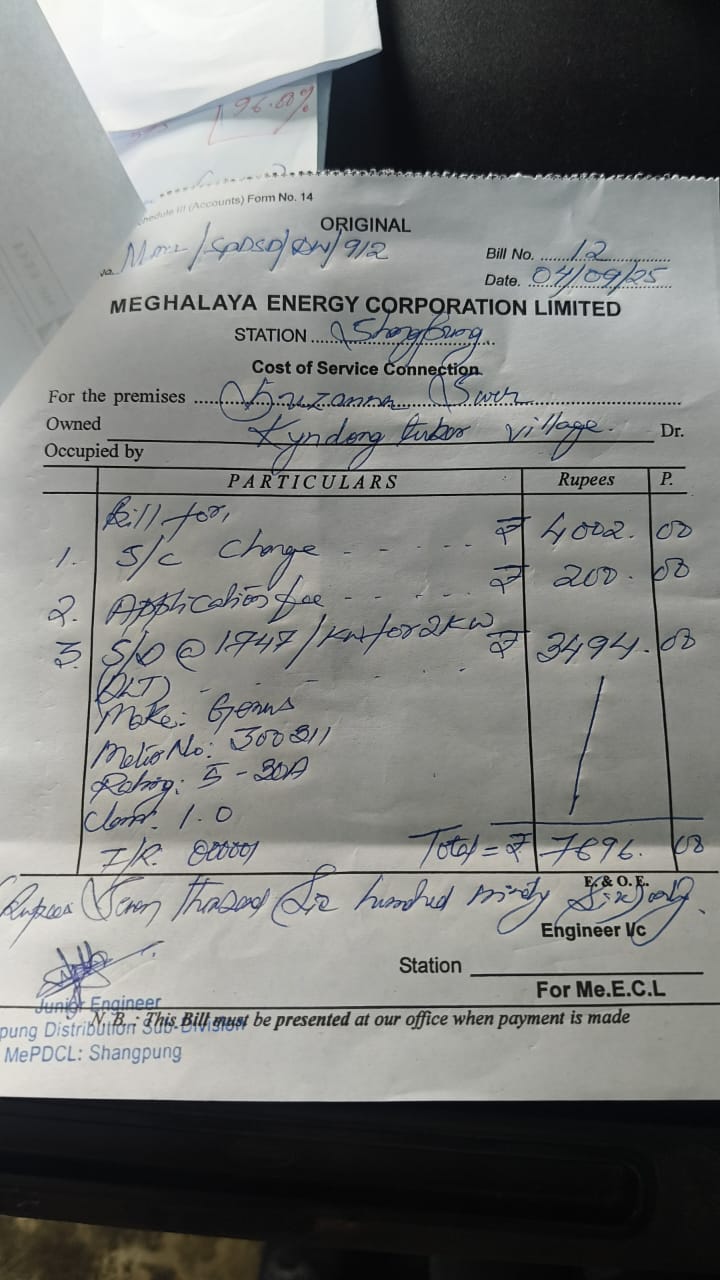 96.80%
hedule III (Accounts) Form No. 14
ORIGINAL
No. /SPDSD/DW/912
Bill No. 12
Date. 04/09/25
MEGHALAYA ENERGY CORPORATION LIMITED
STATION Shangpung
Cost of Service Connection
For the premises Suzanna Swer
Owned
Kyndong tuber village. Dr.
Occupied by
PARTICULARS Rupees P.
Bill for,
1. S/C Charge ₹ 4002. 00
2. Application fee ₹ 200. 00
3 S/D @ 1747/KW for 2KW ₹ 3494. 00
(DLT)
Make: Genus
Meter No: 300811
Rating: 5-30A
Class: 1.0
I/R: 000001 Total = ₹ 7696. 00
E. & O. E.
Rupees Seven thousand Six hundred ninety Six) only.
Engineer I/c
Station
For Me.E.C.L
Junior Engineer
N. B. : This Bill must be presented at our office when payment is made
pung Distribution Sub-Division
MePDCL: Shangpung